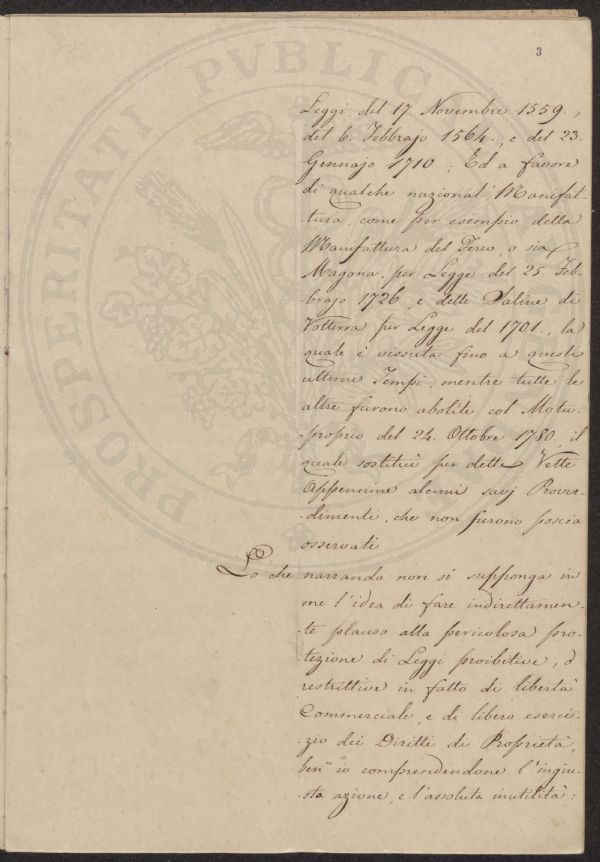 3
Leggi del 17 Novembre 1559.,
del 6. Febbrajo 1564., e del 23.
Gennajo 1710.; Ed a favore
di qualche nazional' Manifat-
-tura, come per esempio della
Manifattura del Ferro, o sia
Magona, per Legge del 25. Feb-
-brajo 1726, e delle Saline di
Volterra per Legge del 1701., la
quale è vissuta fino a questi
ultimi Tempi, mentre tutte le
altre furono abolite col Motu-
-proprio del 24. Ottobre 1780. il
quale sostituì per dette Vette
Appennine alcuni savj Provve-
-dimenti, che non furono poscia
osservati
Lo che narrando non si supponga in
me l'idea di fare indirettamen-
-te plauso alla pericolosa pro-
-tezione di Leggi proibitive, o
restrittive in fatto di libertà
Commerciale, e di libero eserci-
-zio dei Diritti di Proprietà,
ben io comprendendone l'ingiu-
-sta azione, e l'assoluta inutilità:
PROSPERITATI PVBLICAE